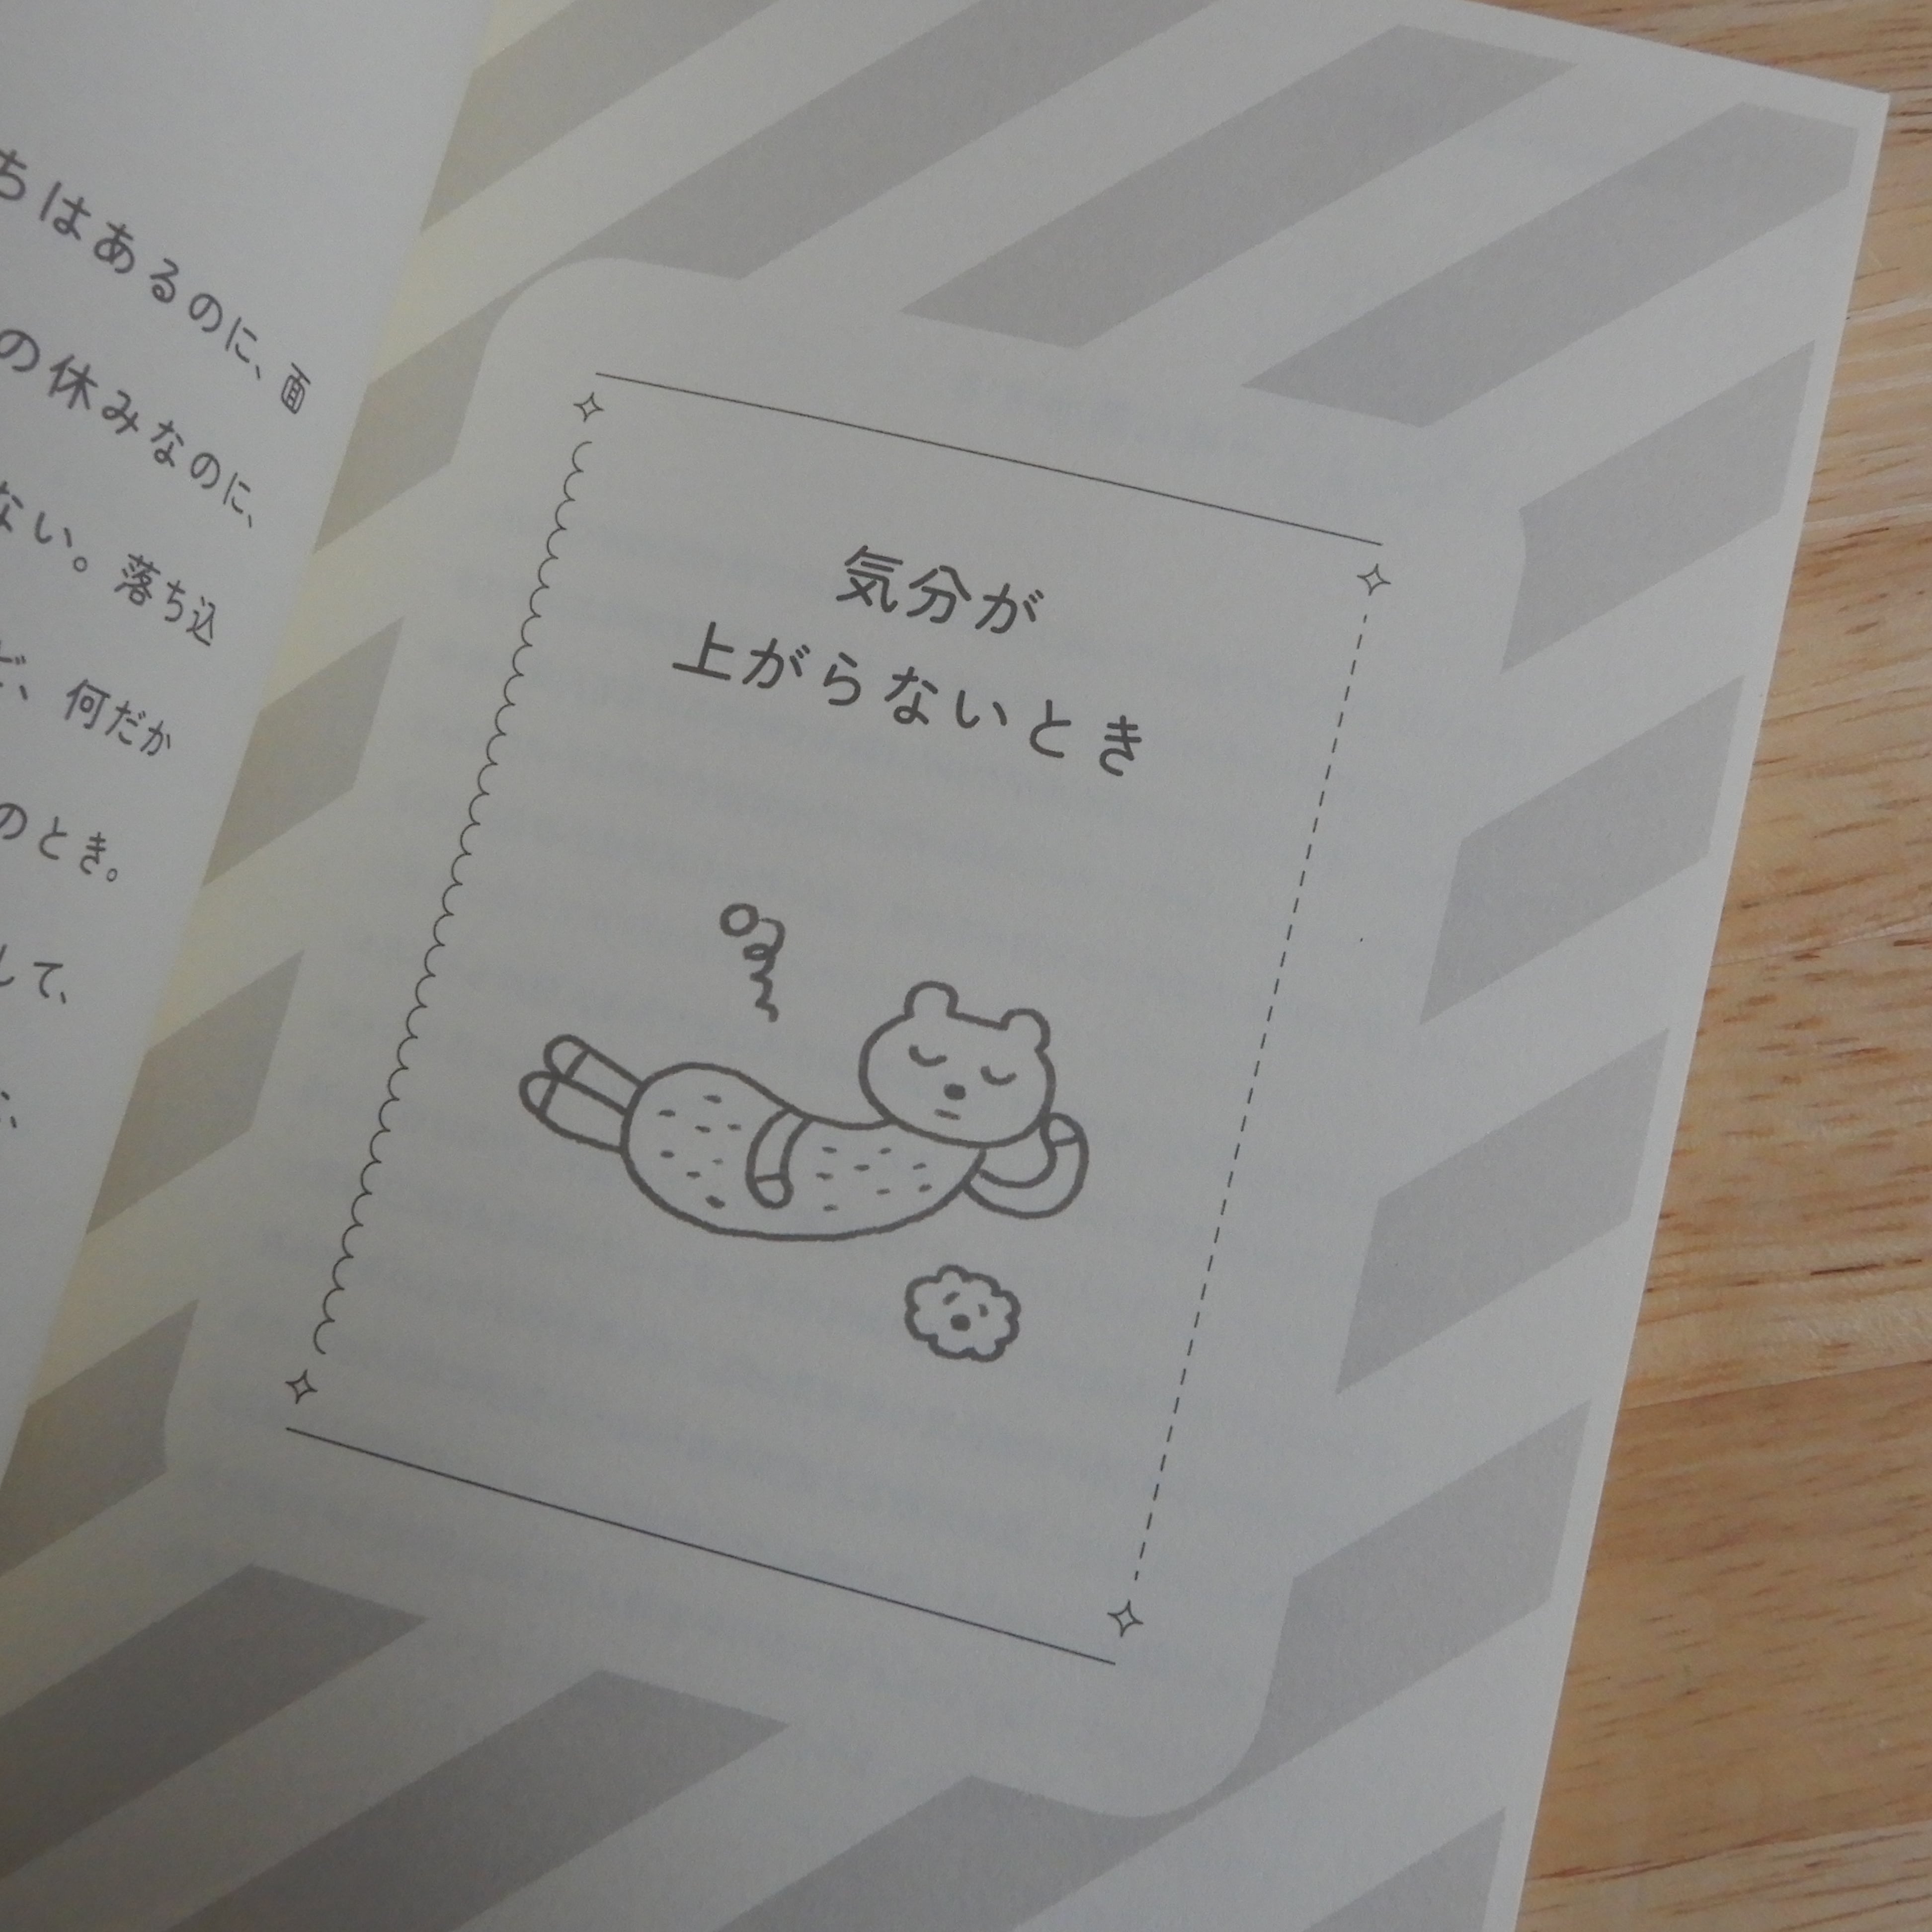 ちはあるのに、面
の休みなのに、
ない。落ち込
ど、何だか
のとき。
して、
気分が
上がらないとき